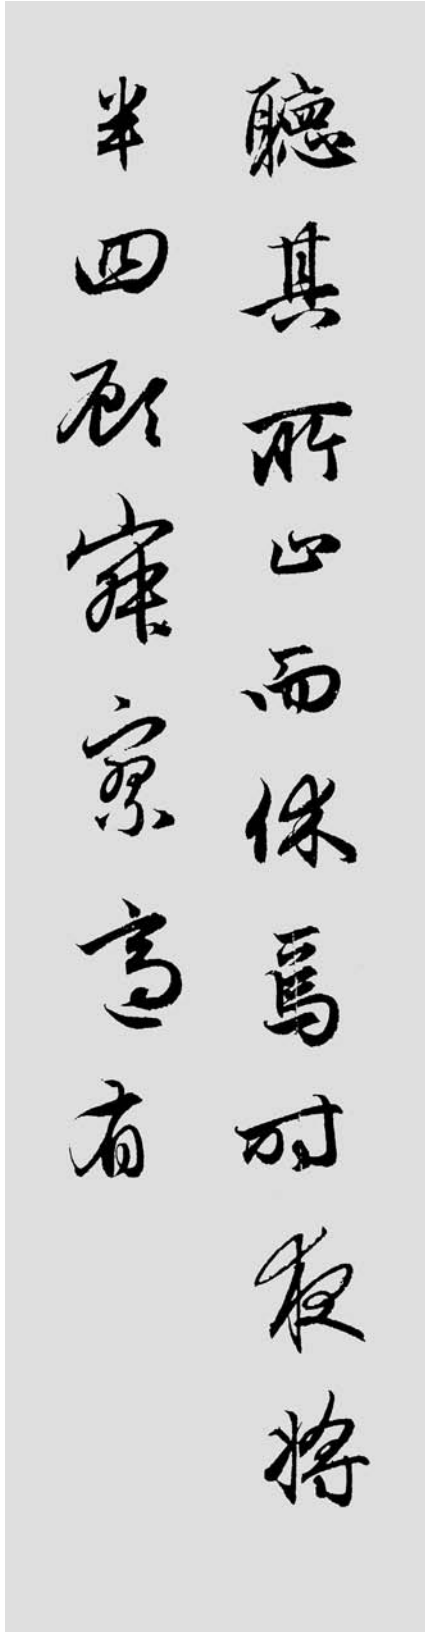 聽其所止而休焉時夜將
半四顧寂寥適有